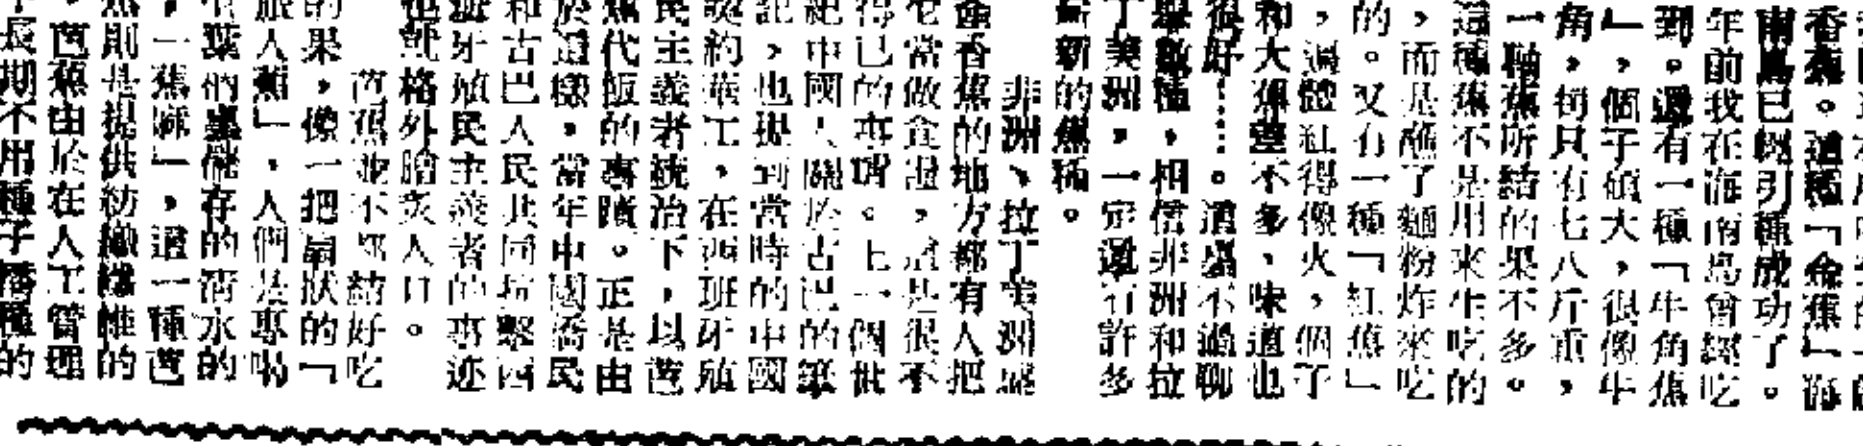 香蕉。這種「金蕉」海
南島已經引種成功了。
年前我在海南島曾經吃
到。還有一種「牛角蕉
」，個子碩大，很像牛
角，每只有七八斤重，
一軸蕉所結的果不多。
這種蕉不是用來生吃的
，而是蘸了麵粉炸來吃
的。又有一種「紅蕉」
，遍體紅得像火，個子
和大蕉差不多，味道也
很好……。這還不過聊
舉數種，相信非洲和拉
丁美洲，一定還有許多
新的蕉種。
非洲、拉丁美洲盛
產香蕉的地方都有人把
它當做食糧，這是很不
得已的事啊。上一個世
紀中國人關於古巴的筆
記，也提到當時的中國
契約華工，在西班牙殖
民主義者統治下，以芭
蕉代飯的事蹟。正是由
於這樣，當年中國僑民
和古巴人民共同抗擊西
班牙殖民主義者的事迹
也就格外膾炙人口。
芭蕉並不都結好吃
的果，像一把扇狀的「
旅人蕉」，人們是專喝
葉柄裏儲存的清水的
，「蕉麻」，這一種芭
蕉則是提供紡織纖維的
，芭蕉由於在人工管理
長期不用種子播種的